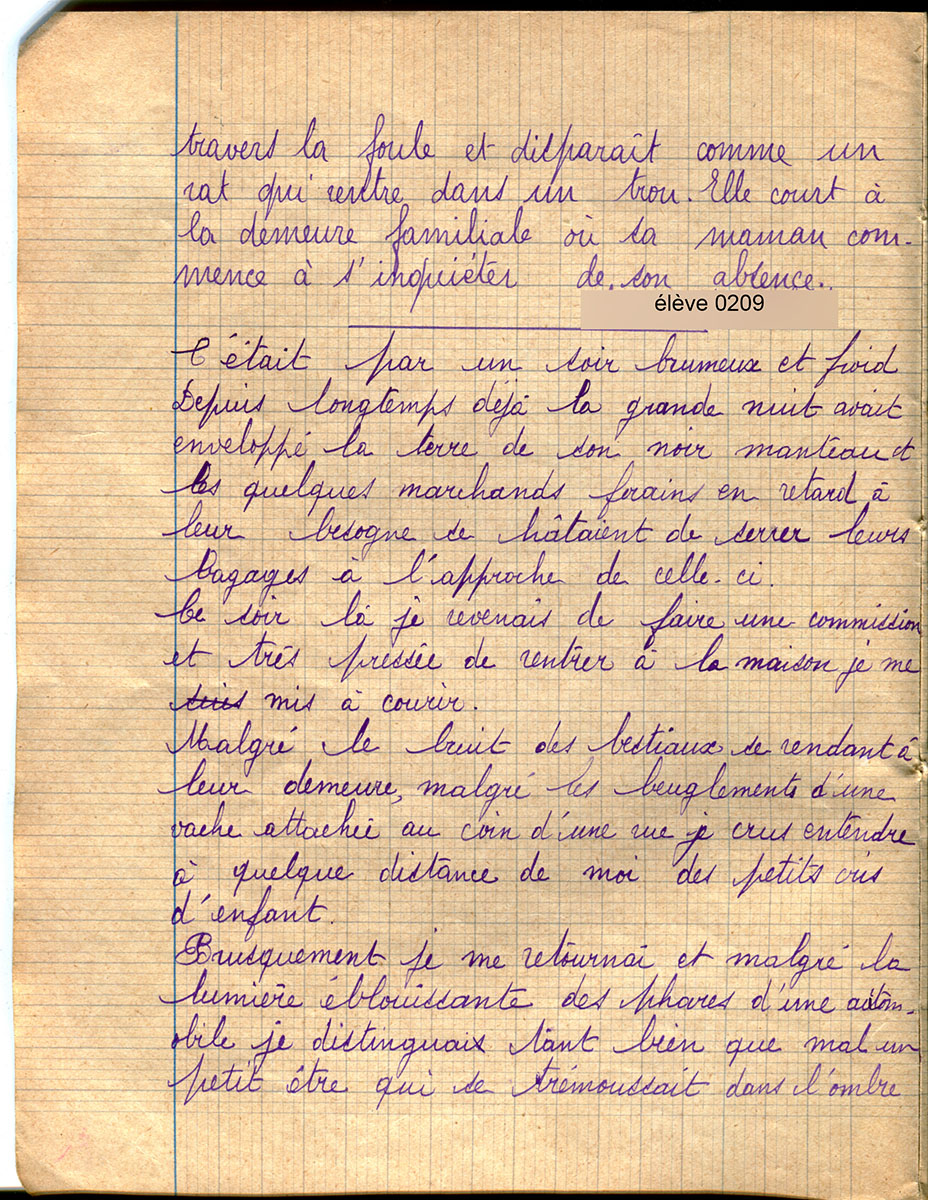 travers la foule et disparaît comme un
rat qui rentre dans un trou. Elle court à
la demeure familiale où sa maman com-
mence à s'inquiéter de son absence.
élève 0209
C'était par un soir brumeux et froid
Depuis longtemps déjà la grande nuit avait
enveloppé la terre de son noir manteau et
les quelques marchands forains en retard à
leur besogne se hâtaient de serrer leurs
bagages à l'approche de celle-ci.
Ce soir là je revenais de faire une commission
et très pressée de rentrer à la maison je me
suis mis à courir.
Malgré le bruit des bestiaux se rendant à
leur demeure, malgré les beuglements d'une
vache attachée au coin d'une rue je crus entendre
à quelque distance de moi des petits cris
d'enfant.
Brusquement je me retournai et malgré la
lumière éblouissante des phares d'une autom-
obile je distinguais tant bien que mal un
petit être qui se trémoussait dans l'ombre